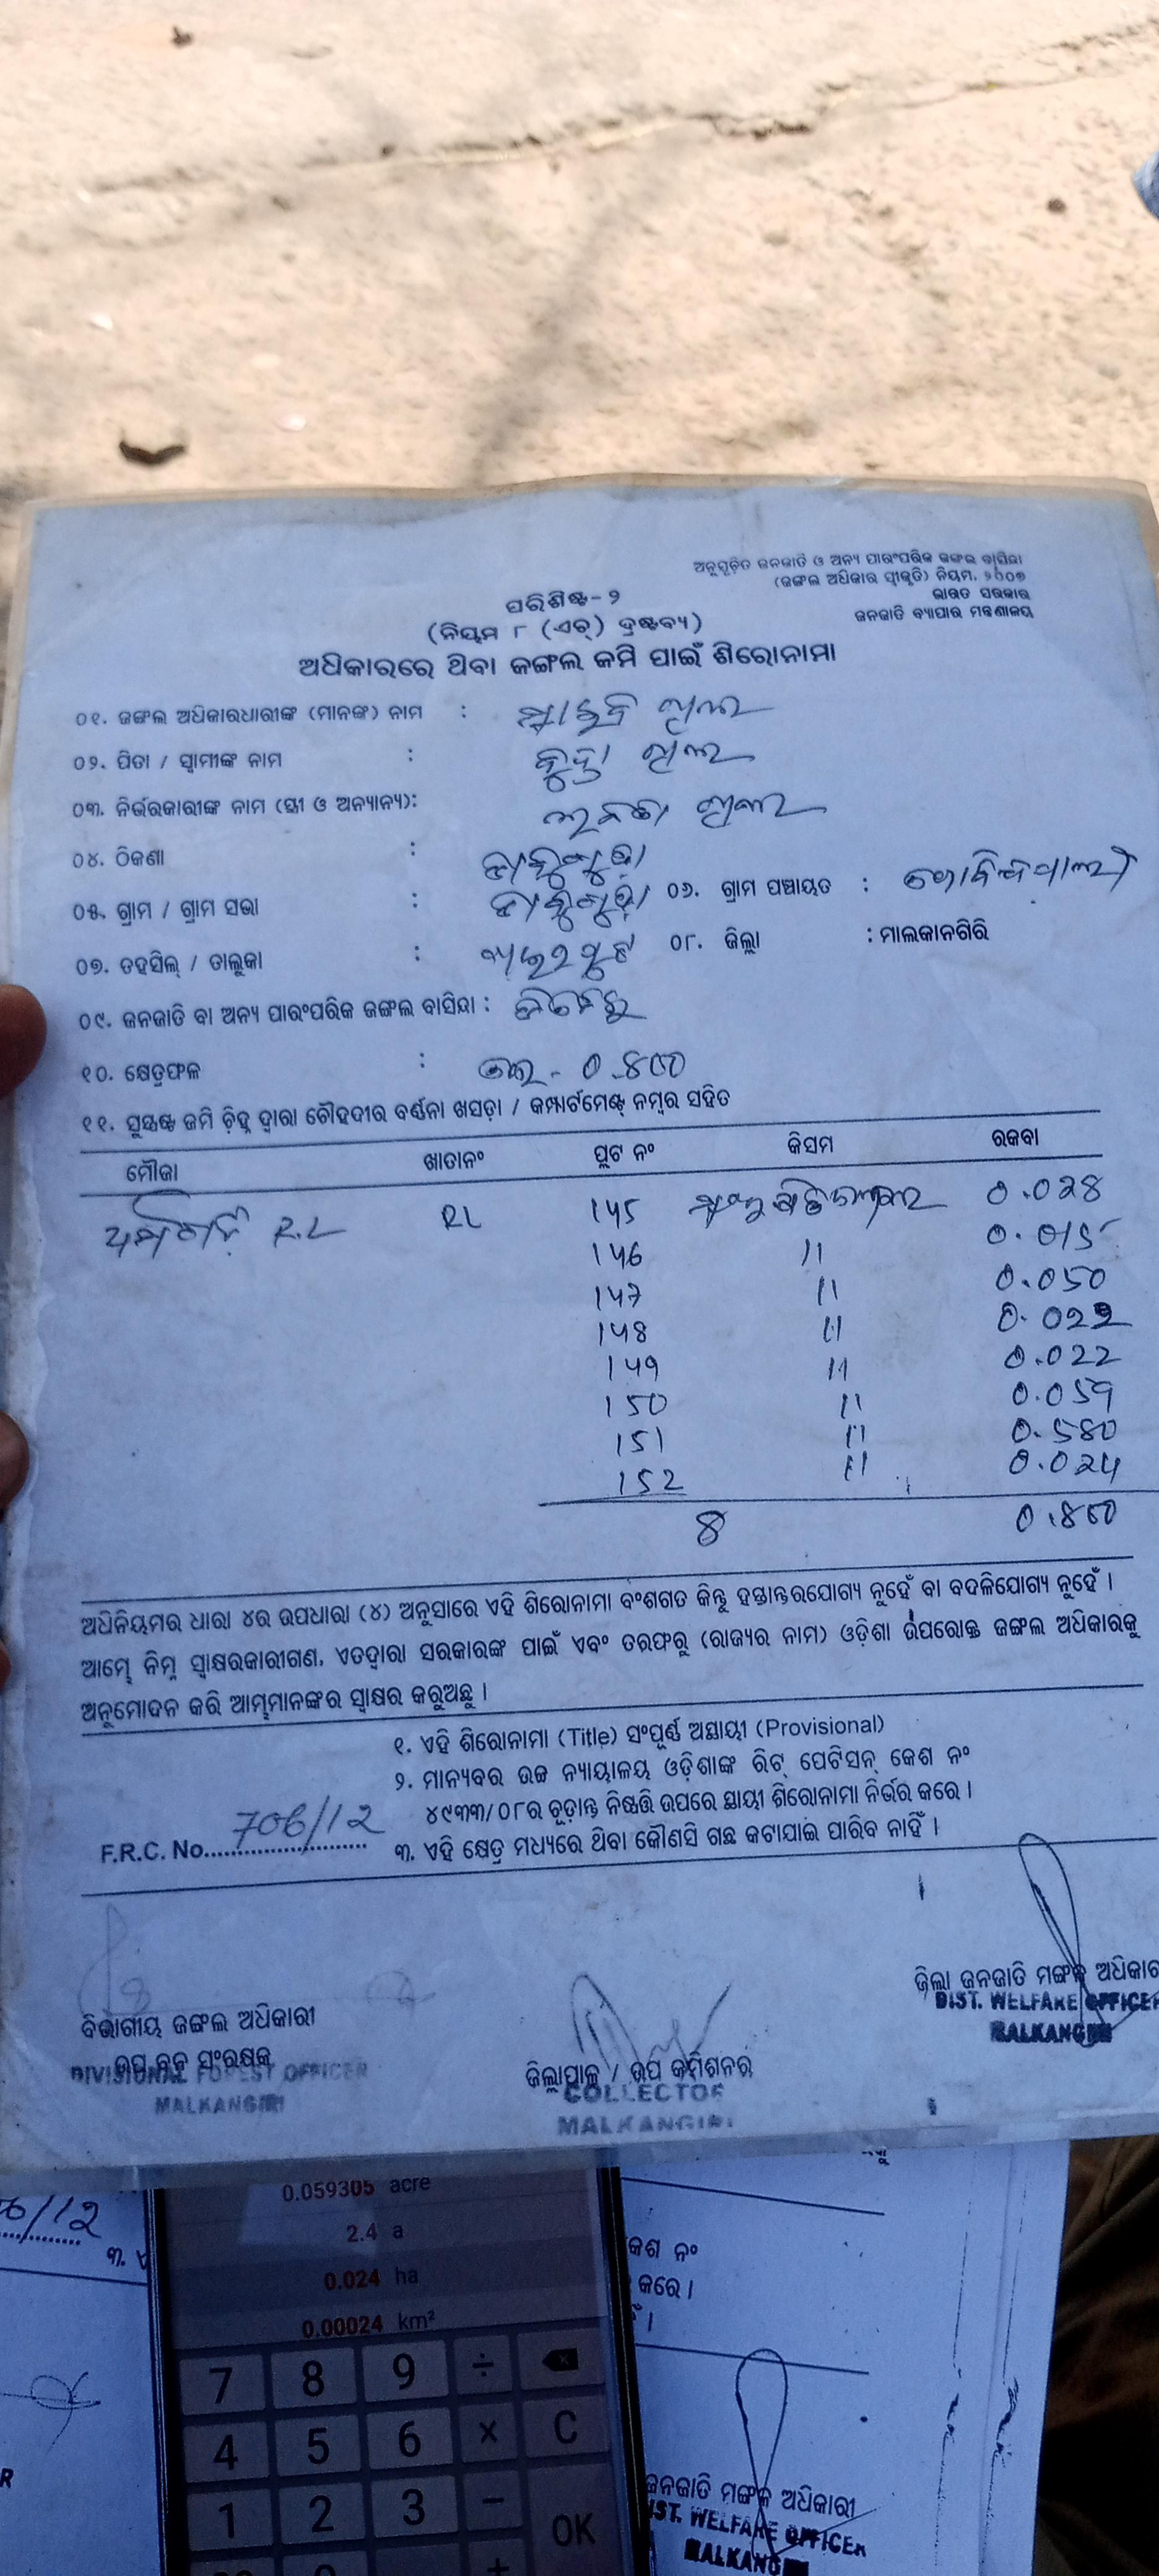 ଅନୁସୂଚିତ ଜନଜାତି ଓ ଅନ୍ୟ ପାରଂପରିକ ଜଙ୍ଗଲ ବାସିନ୍ଦା
(ଜଙ୍ଗଲ ଅଧିକାର ସ୍ୱୀକୃତି) ନିୟମ, ୨୦୦୭
ଭାରତ ସରକାର
ଜନଜାତି ବ୍ୟାପାର ମନ୍ତ୍ରଣାଳୟ
ପରିଶିଷ୍ଟ-୨
(ନିୟମ ୮ (ଏଚ୍) ଦ୍ରଷ୍ଟବ୍ୟ)
ଅଧିକାରରେ ଥିବା ଜଙ୍ଗଲ ଜମି ପାଇଁ ଶିରୋନାମା
୦୧. ଜଙ୍ଗଲ ଅଧିକାରଧାରୀଙ୍କ (ମାନଙ୍କ) ନାମ :
୦୨. ପିତା / ସ୍ୱାମୀଙ୍କ ନାମ :
୦୩. ନିର୍ଭରକାରୀଙ୍କ ନାମ (ସ୍ତ୍ରୀ ଓ ଅନ୍ୟାନ୍ୟ):
୦୪. ଠିକଣା :
୦୫. ଗ୍ରାମ / ଗ୍ରାମ ସଭା : ୦୬. ଗ୍ରାମ ପଞ୍ଚାୟତ : ଗୋବିନ୍ଦପାଲୀ
୦୭. ତହସିଲ୍ / ତାଲୁକା : ଖଇରପୁଟ ୦୮. ଜିଲ୍ଲା : ମାଲକାନଗିରି
୦୯. ଜନଜାତି ବା ଅନ୍ୟ ପାରଂପରିକ ଜଙ୍ଗଲ ବାସିନ୍ଦା :
୧୦. କ୍ଷେତ୍ରଫଳ : 0.800
୧୧. ସୁସ୍ପଷ୍ଟ ଜମି ଚିହ୍ନ ଦ୍ୱାରା ଚୌହଦୀର ବର୍ଣ୍ଣନା ଖସଡ଼ା / କମ୍ପାର୍ଟମେଣ୍ଟ୍ ନମ୍ବର ସହିତ
ମୌଜା ଖାତାନଂ ପ୍ଲଟ ନଂ କିସମ ରକବା
R.L RL 145 0.028
146 11 0.015
147 11 0.050
148 11 0.022
149 11 0.022
150 11 0.059
151 11 0.580
152 11 0.024
8 0.800
ଅଧିନିୟମର ଧାରା ୪ର ଉପଧାରା (୪) ଅନୁସାରେ ଏହି ଶିରୋନାମା ବଂଶଗତ କିନ୍ତୁ ହସ୍ତାନ୍ତରଯୋଗ୍ୟ ନୁହେଁ ବା ବଦଳିଯୋଗ୍ୟ ନୁହେଁ ।
ଆମ୍ଭେ ନିମ୍ନ ସ୍ୱାକ୍ଷରକାରୀଗଣ, ଏତଦ୍ୱାରା ସରକାରଙ୍କ ପାଇଁ ଏବଂ ତରଫରୁ (ରାଜ୍ୟର ନାମ) ଓଡ଼ିଶା ଉପରୋକ୍ତ ଜଙ୍ଗଲ ଅଧିକାରକୁ
ଅନୁମୋଦନ କରି ଆମ୍ଭମାନଙ୍କର ସ୍ୱାକ୍ଷର କରୁଅଛୁ ।
୧. ଏହି ଶିରୋନାମା (Title) ସଂପୂର୍ଣ୍ଣ ଅସ୍ଥାୟୀ (Provisional)
୨. ମାନ୍ୟବର ଉଚ୍ଚ ନ୍ୟାୟାଳୟ ଓଡ଼ିଶାଙ୍କ ରିଟ୍ ପେଟିସନ୍ କେଶ ନଂ
୪୯୩୩/୦୮ର ଚୂଡ଼ାନ୍ତ ନିଷ୍ପତ୍ତି ଉପରେ ସ୍ଥାୟୀ ଶିରୋନାମା ନିର୍ଭର କରେ ।
F.R.C. No. 706/12 ୩. ଏହି କ୍ଷେତ୍ର ମଧ୍ୟରେ ଥିବା କୌଣସି ଗଛ କଟାଯାଇ ପାରିବ ନାହିଁ ।
ଜିଲା ଜନଜାତି ମଙ୍ଗଳ ଅଧିକାରୀ
DIST. WELFARE OFFICER
MALKANGIRI
ବିଭାଗୀୟ ଜଙ୍ଗଲ ଅଧିକାରୀ
ଉପ ବନ ସଂରକ୍ଷକ
DIVISIONAL FOREST OFFICER
MALKANGIRI
ଜିଲ୍ଲାପାଳ / ଉପ କମିଶନର
COLLECTOR
MALKANGIRI
0.059305 acre
2.4 a
0.024 ha
0.00024 km²
7 8 9 ÷
4 5 6 × C
1 2 3 − OK
+
6/12
୩.
R
କେଶ ନଂ
କରେ ।
ଜନଜାତି ମଙ୍ଗଳ ଅଧିକାରୀ
IST. WELFARE OFFICER
MALKANG